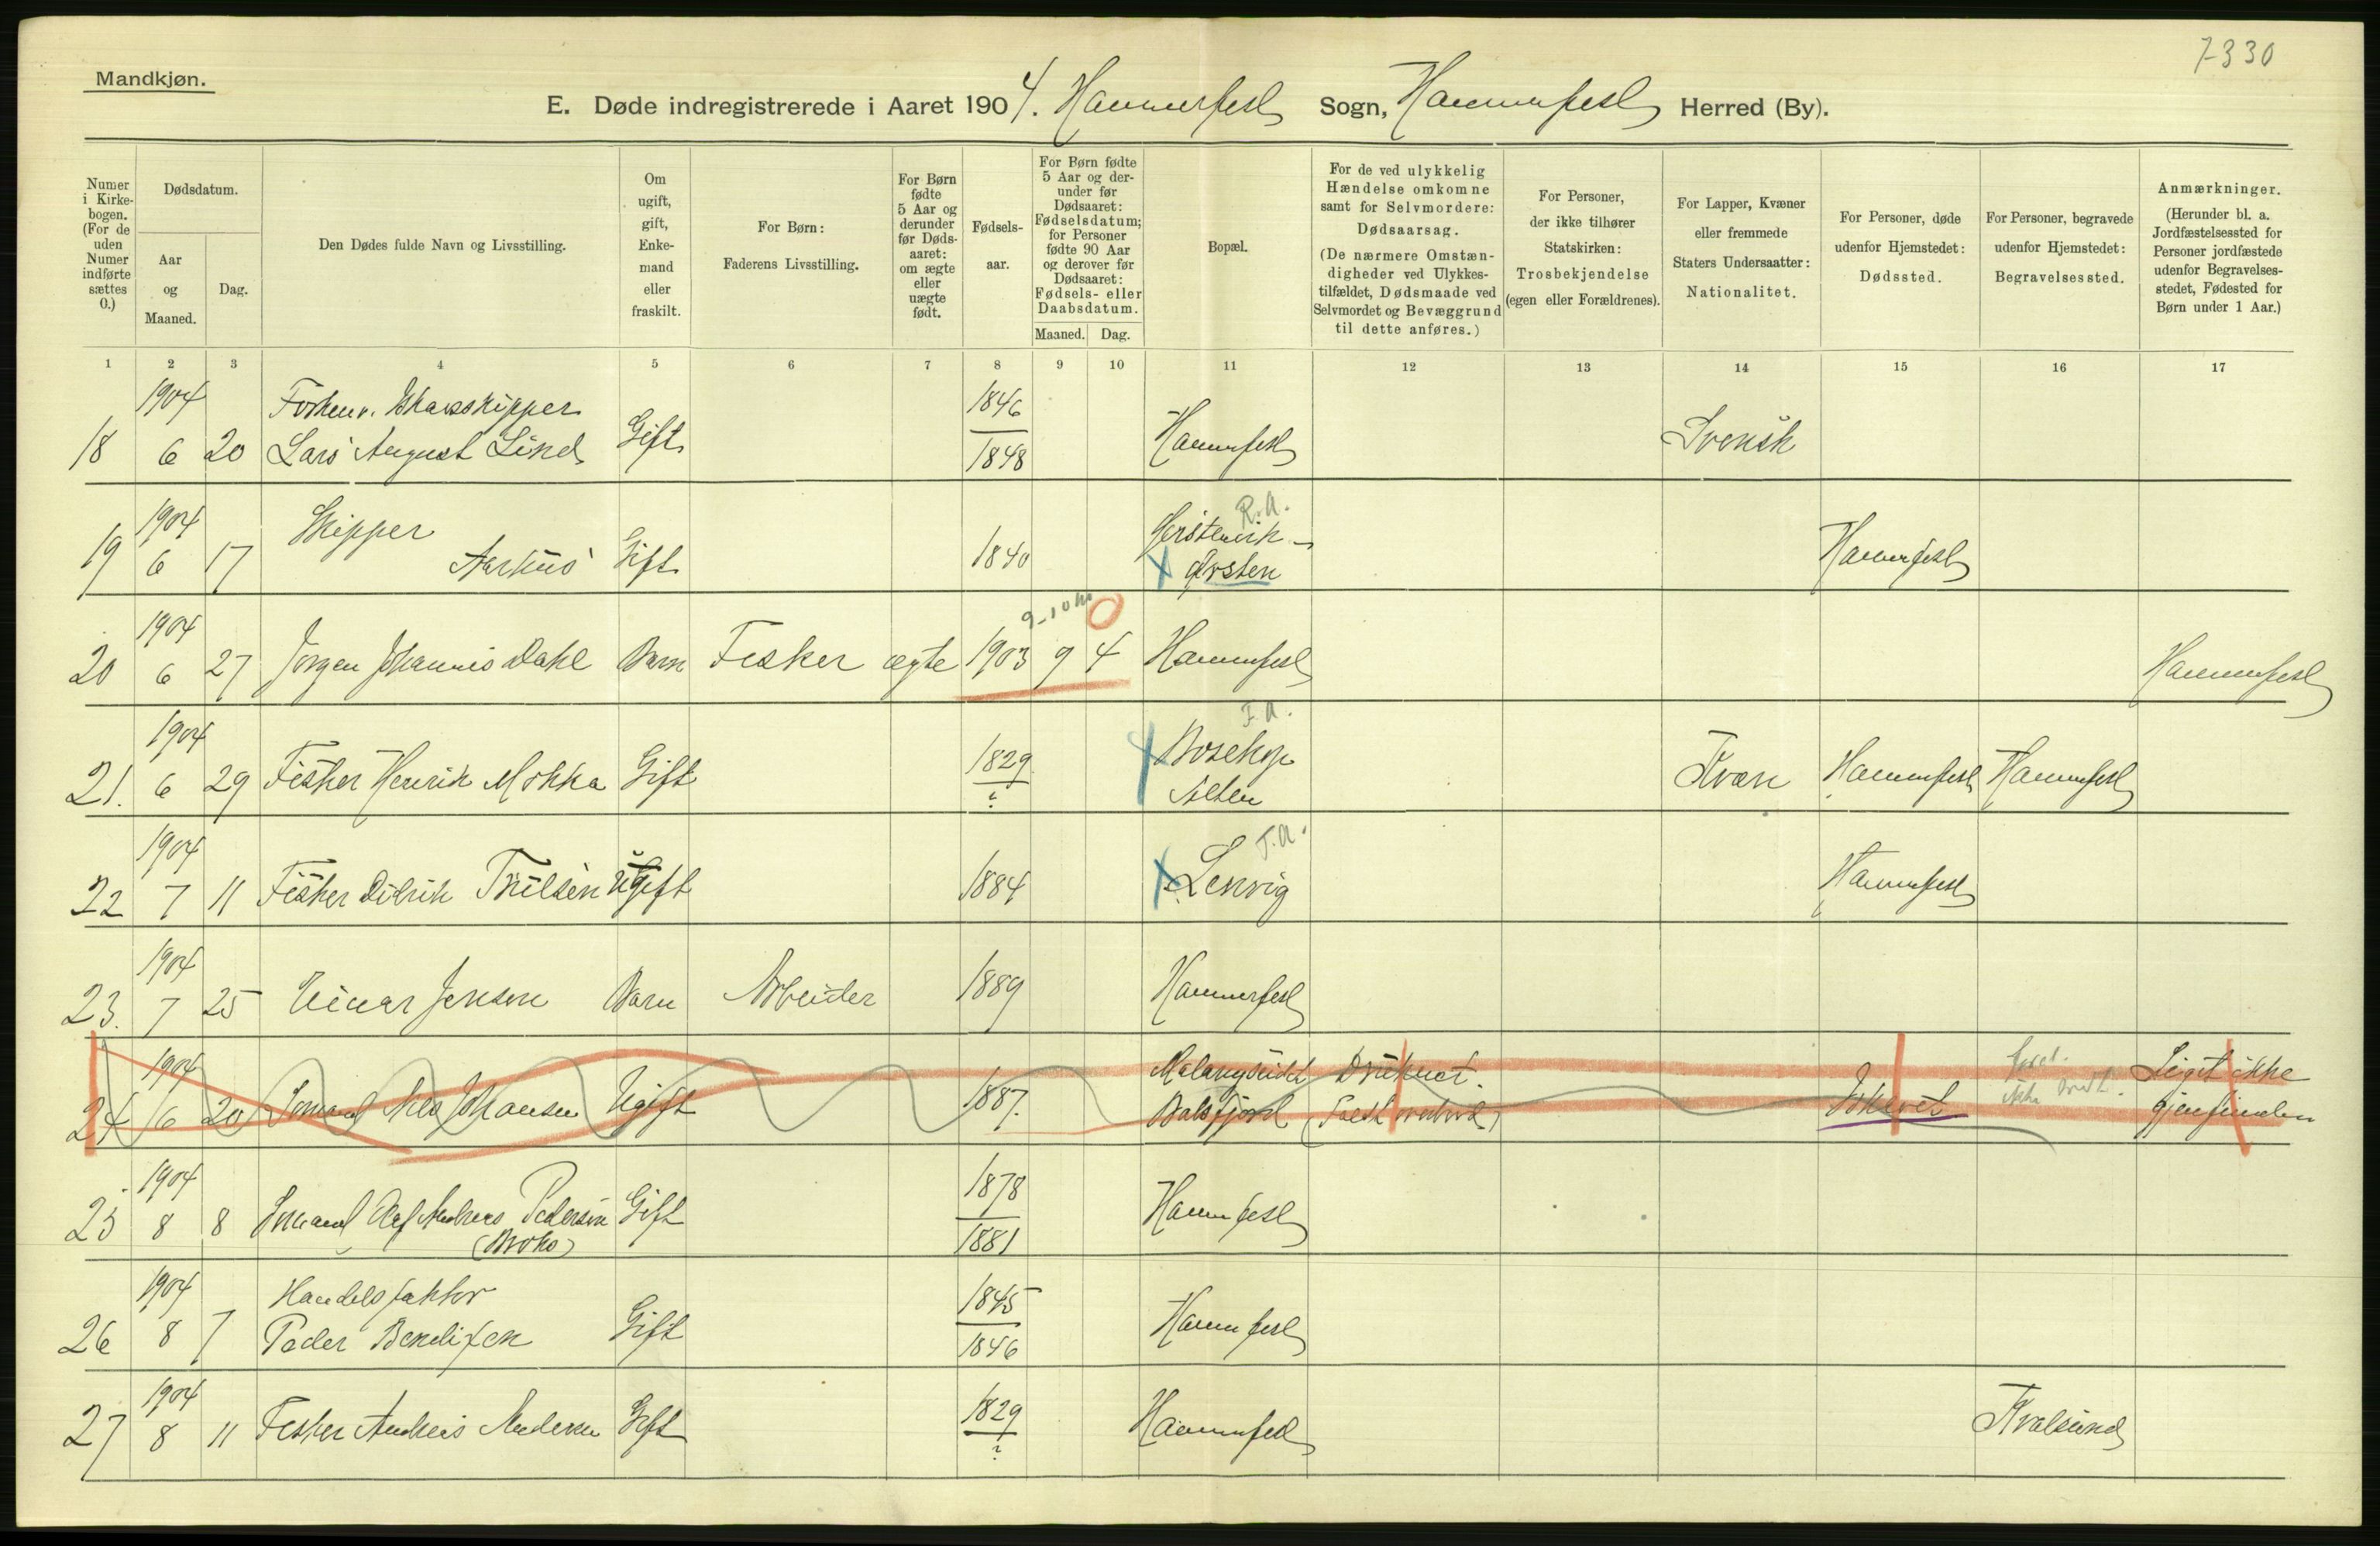 7330
Mandkjøn.
E. Døde indregistrerede i Aaret 1904. Hammerfest Sogn, Hammerfest Herred (By).
Numer i Kirkebogen. (For de uden Numer indførte sættes 0.)
Dødsdatum.
Aar og Maaned.
Dag.
Den Dødes fulde Navn og Livsstilling.
Om ugift, gift, Enkemand eller fraskilt.
For Børn: Faderens Livsstilling.
For Børn fødte 5 Aar og derunder før Dødsaaret: om ægte eller uægte født.
Fødselsaar.
For Børn fødte 5 Aar og derunder før Dødsaaret: Fødselsdatum; for Personer fødte 90 Aar og derover før Dødsaaret: Fødsels- eller Daabsdatum.
Maaned. Dag.
Bopæl.
For de ved ulykkelig Hændelse omkomne samt for Selvmordere: Dødsaarsag. (De nærmere Omstændigheder ved Ulykkestilfældet, Dødsmaade ved Selvmordet og Bevæggrund til dette anføres.)
For Personer, der ikke tilhører Statskirken: Trosbekjendelse (egen eller Forældrenes).
For Lapper, Kvæner eller fremmede Staters Undersaatter: Nationalitet.
For Personer, døde udenfor Hjemstedet: Dødssted.
For Personer, begravede udenfor Hjemstedet: Begravelsessted.
Anmærkninger. (Herunder bl. a. Jordfæstelsessted for Personer jordfæstede udenfor Begravelsesstedet, Fødested for Børn under 1 Aar.)
1 2 3 4 5 6 7 8 9 10 11 12 13 14 15 16 17
1904 Forhenv. Ishavsskipper 1846
18 6 20 Lars August Lind Gift 1848 Hammerfest Svensk
1904 Skipper R.A.
19 6 17 Aarhus Gift 1840 X Ørsten Hammerfest
1904
20 6 27 Jørgen Johannes Dahl Barn Fisker ægte 1903 9 4 Hammerfest Hammerfest
1904 F.A.
21. 6 29 Fisker Henrik Mokka Gift 1829 ? X Bosekop Alten Kvæn Hammerfest Hammerfest
1904 F.A.
22 7 11 Fisker Didrik Ugift 1884 X Lenvig Hammerfest
1904
23. 7 25 Einar Jensen Barn Arbeider 1889 Hammerfest
1904 Malangseidet Druknet. Liget ikke
24 6 20 Sømand Nils Johansen Ugift 1887. Balsfjord (Faldt overbord) Ishavet gjenfunden
1904 1878
25 8 8 Sømand Andreas Pedersen Gift 1881 Hammerfest
1904 Handelsfaktor 1845
26 8 7 Peder Bendixen Gift 1846 Hammerfest
1904
27 8 11 Fisker Andreas Andersen Gift 1829 ? Hammerfest Kvalsund